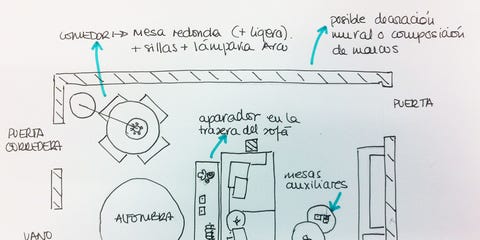 COMEDOR → mesa redonda (+ ligera).
+ sillas + lámpara Arco
posible decoración
mural o composición
de marcos
PUERTA
PUERTA
CORREDERA
aparador en la
trasera del sofá
mesas
auxiliares
ALFOMBRA
VANO